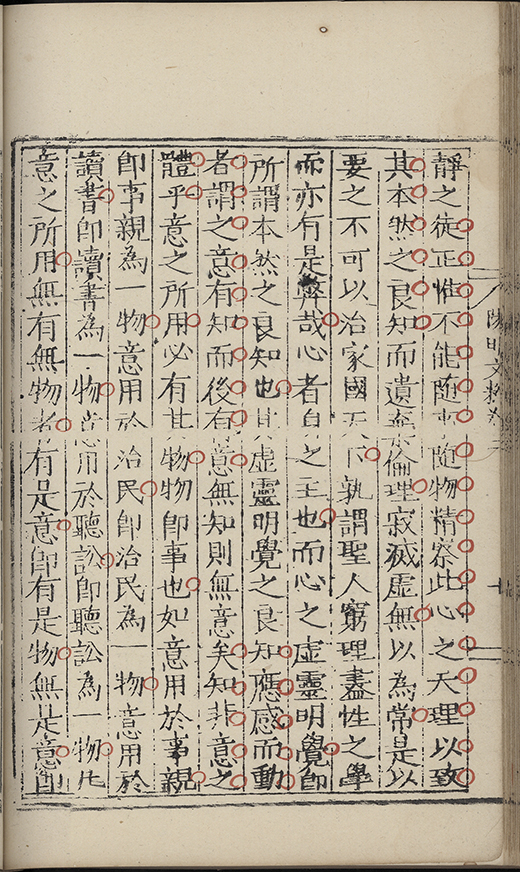 陽明文粹卷
靜之徒正惟不能隨事隨物精察此心之天理以致
其本然之良知而遺棄倫理寂滅虛無以為常是以
要之不可以治家國天下孰謂聖人窮理盡性之學
而亦有是弊哉心者身之主也而心之虛靈明覺即
所謂本然之良知也其虛靈明覺之良知應感而動
者謂之意有知而後有意無知則無意矣知非意之
體乎意之所用必有其物物即事也如意用於事親
即事親為一物意用於治民即治民為一物意用於
讀書即讀書為一物意用於聽訟即聽訟為一物凡
意之所用無有無物者有是意即有是物無是意即